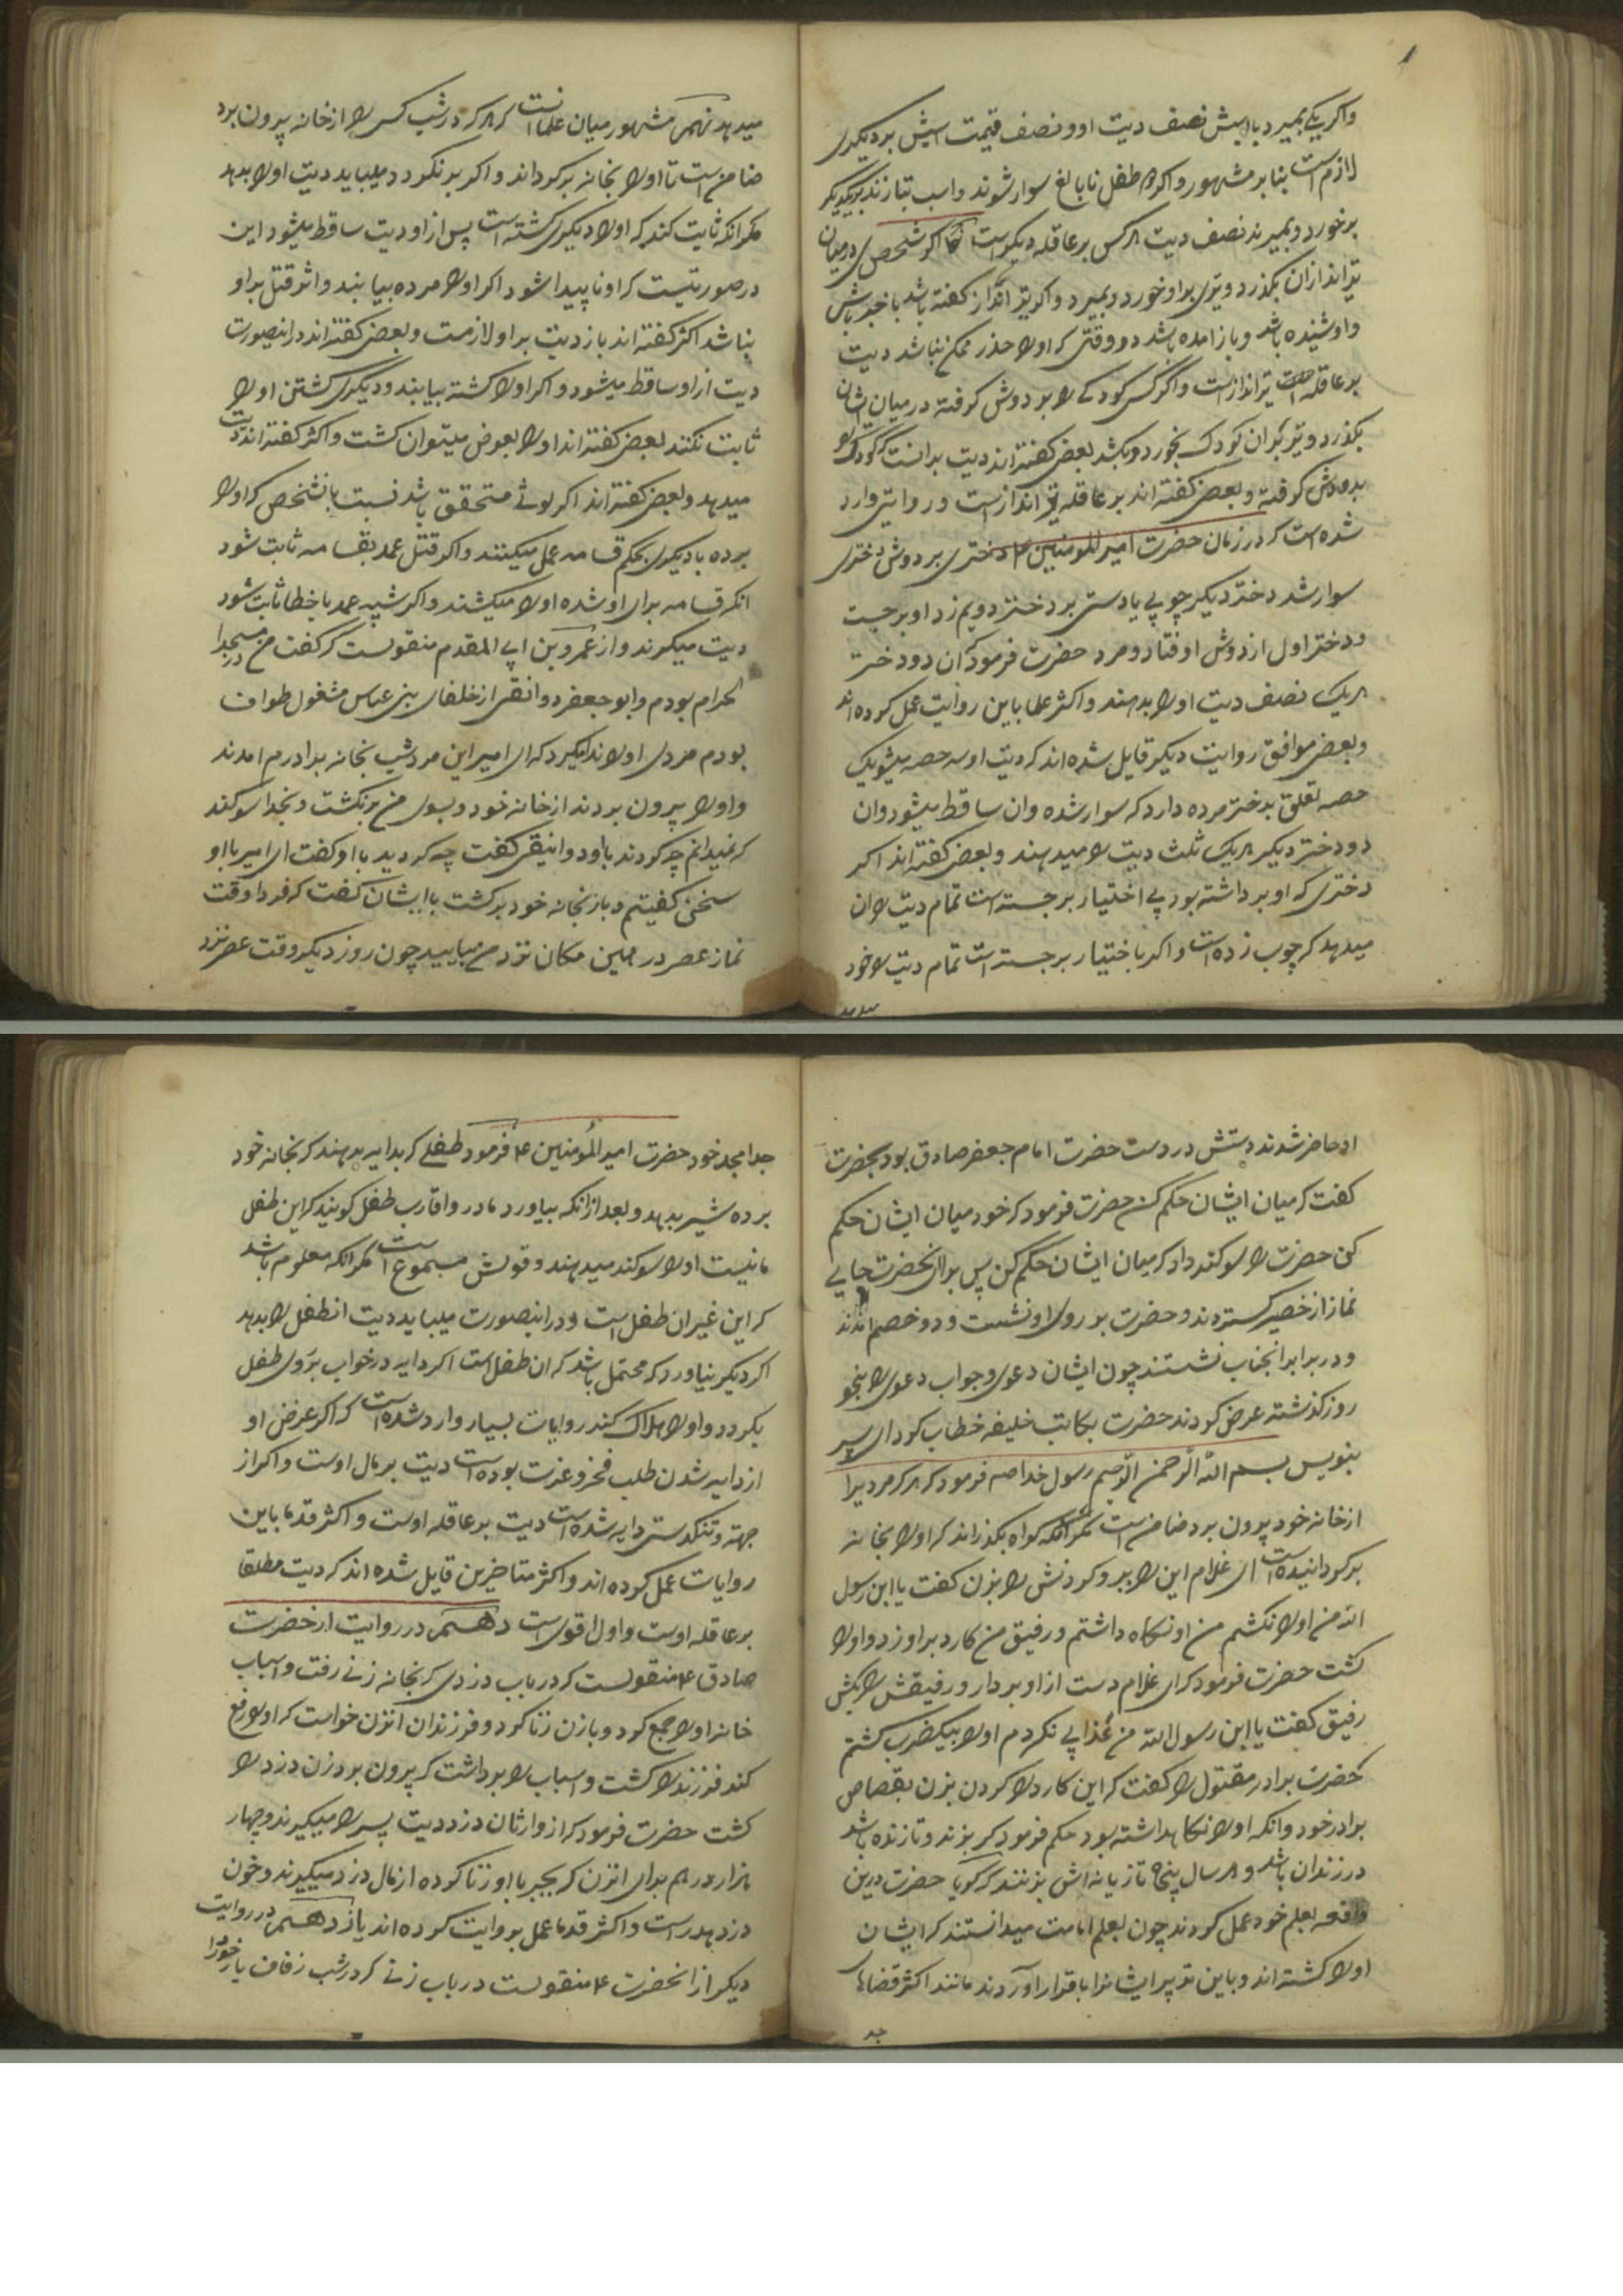 واکر یکی بمیرد با اسبش نصف دیت او و نصف قیمت اسبش بر دیگری
لازم است بنابر مشهور و اکر دو طفل نابالغ سوار شوند و اسب بتازند و بیکدیگر
برخورد و بمیرند نصف دیت هر کس بر عاقله دیگر است اکر شخصی در میان
تیراندازان بگذرد و تیری براو خورد و بمیرد و اکر تیر انداز کفته باشد با خبر باش
و او شنیده باشد و باز آمده باشد در وقتی که او را حذر ممکن نباشد دیت
بر عاقله تیرانداز است و اگر کسی کودکی را بر دوش کرفته در میان ایشان
بگذرد و تیر بر آن کودک بخورد و بکشد بعضی کفته اند دیت بر آنست که کودک را
بدوش کرفته و بعضی کفته اند بر عاقله تیر انداز است و روایتی وارد
شده است که در زمان حضرت امیرالمومنین ع دختری بر دوش دختری
سوار شد دختر دیگر چوبی یا دستی بر دختر دویم زد او بر جست
و دختر اول از دوش او فتاد و مرد حضرت فرمود آن دو دختر
هر یک نصف دیت او را بدهند و اکثر علما باین روایت عمل کرده اند
و بعضی موافق روایت دیگر قایل شده اند که دیت او سه حصه میشود یک
حصه تعلق بدختر مرده دارد که سوار شده و ان ساقط میشود و ان
دو دختر دیگر هر یک ثلث دیت را میدهند و بعضی کفته اند اکر
دختری که او برداشته بود بی اختیار برجسته است تمام دیت را ان
میدهد که چوب زده است و اکر باختیار برجسته است تمام دیت را خود
میدهد
میدهد نهم مشهور میان علما انست که هر که در شب کسی را از خانه بیرون برد
ضامن است تا او را بخانه برگرداند و اکر برنگردد میباید دیت او را بدهد
مگر آنکه ثابت کند که او را دیگری کشته است پس از او دیت ساقط میشود این
در صورتیست که او ناپیدا شود اکر او را مرده بیابند و اثر قتل براو
نباشد اکثر کفته اند باز دیت براو لازمست و بعضی کفته اند در اینصورت
دیت از او ساقط میشود و اکر او را کشته بیابند و دیگری کشتن او را
ثابت نکنند بعضی کفته اند او را بعوض میتوان کشت و اکثر کفته اند دیت
میدهد و بعضی کفته اند اکر لوثی متحقق باشد نسبت بانشخص که او را
برده یا دیگری بحکم قسامه عمل میکنند و اکر قتل عمد بقسامه ثابت شود
انکه قسامه برای او شده او را میکشند و اکر شبیه عمد یا خطا ثابت شود
دیت میگیرند و از عمرو بن ابی المقدم منقولست که گفت من در مسجد
الحرام بودم و ابوجعفر دوانقی از خلفای بنی عباس مشغول طواف
بودم مردی او را ندا میکرد که ای امیر این مرد شب بخانه برادرم امدند
و او را بیرون بردند از خانه خود و بسوی من برنگشت و بخدا سوکند
که نمیدانم چه کردند با او دوانیقی کفت چه کردید با او کفت ای امیر با او
سخنی کفتیم و باز بخانه خود برکشت با ایشان کفت که فردا وقت
نماز عصر در همین مکان نزد من بیایید چون روز دیگر وقت عصر نزد
او حاضر شدند دستش در دست حضرت امام جعفر صادق بود بحضرت
کفت که میان ایشان حکم کن حضرت فرمود که خود میان ایشان حکم
کن حضرت را سوکند داد که میان ایشان حکم کن پس برای انحضرت جایی
نماز از حصیر کستردند و حضرت بر روی او نشست و دو خصم آمدند
و در برابر انجناب نشستند چون ایشان دعوی و جواب دعوی را بنحو
روز کذشته عرض کردند حضرت بکاتب خلیفه خطاب کرد ای پسر
بنویس بسم الله الرحمن الرحیم رسول خدا صم فرمود که هر که مردیرا
از خانه خود بیرون برد ضامن است مگر آنکه کواه بگذراند که او را بخانه
برکردانیده است ای غلام این را ببر و کردنش را بزن کفت یا ابن رسول
الله من او را نکشتم من او نگاه داشتم و رفیق من کارد براو زد و او را
کشت حضرت فرمود که ای غلام دست از او بردار و رفیقش را بکش
رفیق کفت یا ابن رسول الله من عذابی نکردم او را بیکضرب کشتم
حضرت برادر مقتول را کفت که این کارد را کردن بزن بقصاص
برادر خود و انکه او را نگاهداشته بود حکم فرمود که بزنند و تا زنده باشد
در زندان باشد و هر سال پنجاه تازیانه اش بزنند که گویا حضرت درین
واقعه بعلم خود عمل کردند چون بعلم امامت میدانستند که ایشان
او را کشته اند و باین تدبیر ایشانرا باقرار آوردند مانند اکثر قضاها
جد
جد امجد خود حضرت امیرالمؤمنین ع فرمود طفلی که بدایه بدهند که بخانه خود
برده شیر بدهد و بعد از انکه بیاورد مادر و اقارب طفل کویند که این طفل
ما نیست او را سوکند میدهند و قولش مسموع است مکر انکه معلوم باشد
که این غیر ان طفل است و در اینصورت میباید دیت انطفل را بدهد
اکر دیگر نیاورد که محتمل باشد که ان طفل است اکر دایه در خواب بروی طفل
بگردد و او را هلاک کند روایات بسیار وارد شده است که اکر غرض او
از دایه شدن طلب فخر و عزت بوده است دیت بر مال اوست و اکر از
جهته و تنکدستی دایه شده است دیت بر عاقله اوست و اکثر قدما باین
روایات عمل کرده اند و اکثر متاخرین قایل شده اند که دیت مطلقا
بر عاقله اوست و اول اقوی است دهم در روایت از حضرت
صادق ع منقولست که در باب دزدی که بخانه زنی رفت و اسباب
خانه او را جمع کرد و با زن زنا کرد و فرزندان انزن خواست که او را دفع
کند فرزند را کشت و اسباب را برداشت که بیرون برد زن دزد را
کشت حضرت فرمود که از وارثان دزد دیت پسر را میگیرند و چهار
هزار درهم برای انزن که بجبر با او زنا کرده از مال دزد میگیرند و خون
دزد هدر است و اکثر قدما عمل بروایت کرده اند یازدهم در روایت
دیگر از انحضرت ع منقولست در باب زنی که در شب زفاف یار خود را